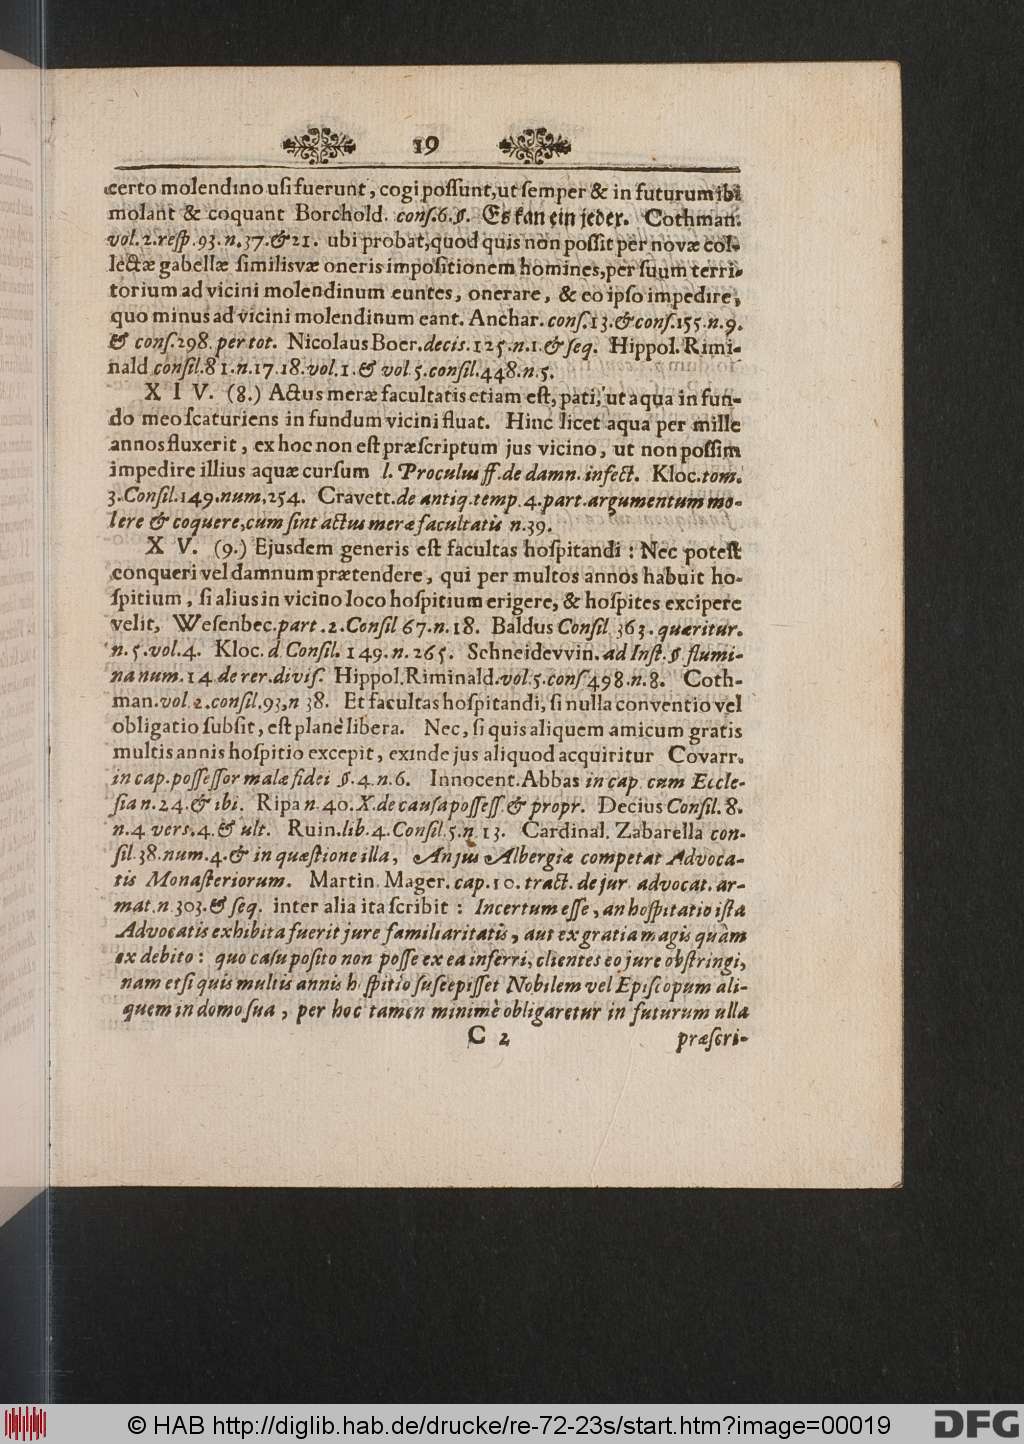 19
certo molendino uſi fuerunt, cogi poſſunt, ut ſemper & in futurum ibi
molant & coquant Borchold. conſ. 6. §. Es kan ein jeder. Cothman.
vol. 2. reſp. 93. n. 37. & 21. ubi probat, quod quis non poſſit per novæ col-
lectæ gabellæ ſimilisvæ oneris impoſitionem homines, per ſuum terri-
torium ad vicini molendinum euntes, onerare, & eo ipſo impedire,
quo minus ad vicini molendinum eant. Anchar. conſ. 13. & conſ. 155. n. 9.
& conſ. 298. per tot. Nicolaus Boer. decis. 125. n. 1. & ſeq. Hippol. Rimi-
nald conſil. 81. n. 17. 18. vol. 1. & vol 5. conſil. 448. n. 5.
XIV. (8.) Actus meræ facultatis etiam eſt, pati, ut aqua in fun-
do meo ſcaturiens in fundum vicini fluat. Hinc licet aqua per mille
annos fluxerit, ex hoc non eſt præſcriptum jus vicino, ut non poſſim
impedire illius aquæ curſum l. Proculus ff. de damn. infect. Kloc. tom.
3. Conſil. 149. num. 254. Cravett. de antiq. temp. 4. part. argumentum mo-
lere & coquere, cum ſint actus meræ facultatis n. 39.
XV. (9.) Ejusdem generis eſt facultas hoſpitandi: Nec poteſt
conqueri vel damnum prætendere, qui per multos annos habuit ho-
ſpitium, ſi alius in vicino loco hoſpitium erigere, & hoſpites excipere
velit, Weſenbec. part. 2. Conſil 67. n. 18. Baldus Conſil 363. quæritur.
n. 5. vol. 4. Kloc. d Conſil. 149. n. 265. Schneidevvin. ad Inſt. §. flumi-
na num. 14 de rer. diviſ. Hippol. Riminald. vol. 5. conſ 498. n. 8. Coth-
man. vol 2. conſil. 93, n 38. Et facultas hoſpitandi, ſi nulla conventio vel
obligatio ſubſit, eſt planè libera. Nec, ſi quis aliquem amicum gratis
multis annis hoſpitio excepit, exinde jus aliquod acquiritur Covarr.
in cap. poſſeſſor malæ fidei §. 4. n. 6. Innocent. Abbas in cap cum Eccle-
ſia n. 24. & ibi. Ripa n. 40. X. de cauſa poſſeſſ. & propr. Decius Conſil. 8.
n. 4 verſ. 4. & ult. Ruin. lib. 4. Conſil. 5. n 13. Cardinal. Zabarella con-
ſil. 38. num. 4. & in quæſtione illa, An jus Albergiæ competat Advoca-
tis Monaſteriorum. Martin. Mager. cap. 10. tract. de jur advocat. ar-
mat. n. 303. & ſeq. inter alia ita ſcribit: Incertum eſſe, an hoſpitatio iſta
Advocatis exhibita fuerit jure familiaritatis, aut ex gratia magis quàm
ex debito: quo caſu poſito non poſſe ex ea inferri, clientes eo jure obſtringi,
nam etſi quis multis annis h ſpitio ſuſcepiſſet Nobilem vel Epiſcopum ali-
quem in domo ſua, per hoc tamen minimè obligaretur in futurum ulla
C 2 præſcri-
© HAB http://diglib.hab.de/drucke/re-72-23s/start.htm?image=00019 DFG